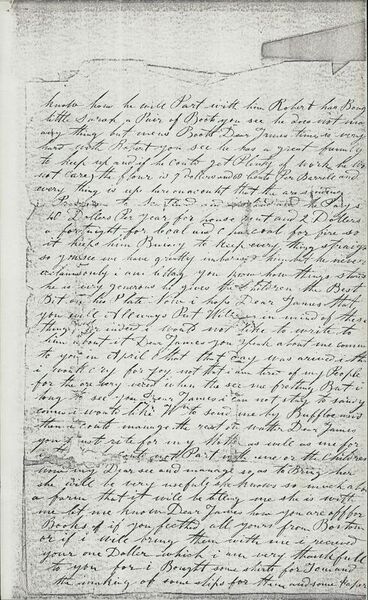 know how he will Part with him Robert has Boug
little Sarah a Pair of Book you see he does not
any thing but mens Boots Dear James times is very
hard with Robert you see he has a great family
to keep up and if he Could get Plenty of work he
not Care the flour is 9 dollars and 60 Cents Per Barrell and
every thing is up here on account that the are sending
Provisions to and he Pays
Dollars Per year for house rent and 2 Dollars
a fortnight for Coal and Charcoal for fire so
it keeps him Buissy to keep every thing straight
so you see we have greatly him But he never
Complains only i am letting you know how things stand
he is very generous he gives the Children the Best
Bit on the Plate Now i hope Dear James that
you will Allways Put Well in mind of these
things for indeed i would not like to write to
him about it Dear James you speak about me coming
to you in April i wish that Day was arrived i
i would cry for joy not that i am tired of my People
for the are very vexed when the see me fretting But i
long to see you Dear James i am not stay to
comes i would like W to send me by Buffloe and
then i could manage the rest of watter Dear James
you must rite for my as well as me for
will not Part with me or the Children
Dear see and manage so as to Bring her
she will be very usefull she knows so much about
a farm that it will be telling me she is with
me let me know Dear James how you are off for
Books of if you fetched all yours from Boston
or if i will bring them with me i received
your one Doller which i am very thankfull
to you for i Bought some shirts for Tom and
the making of some slips for them and some Paper